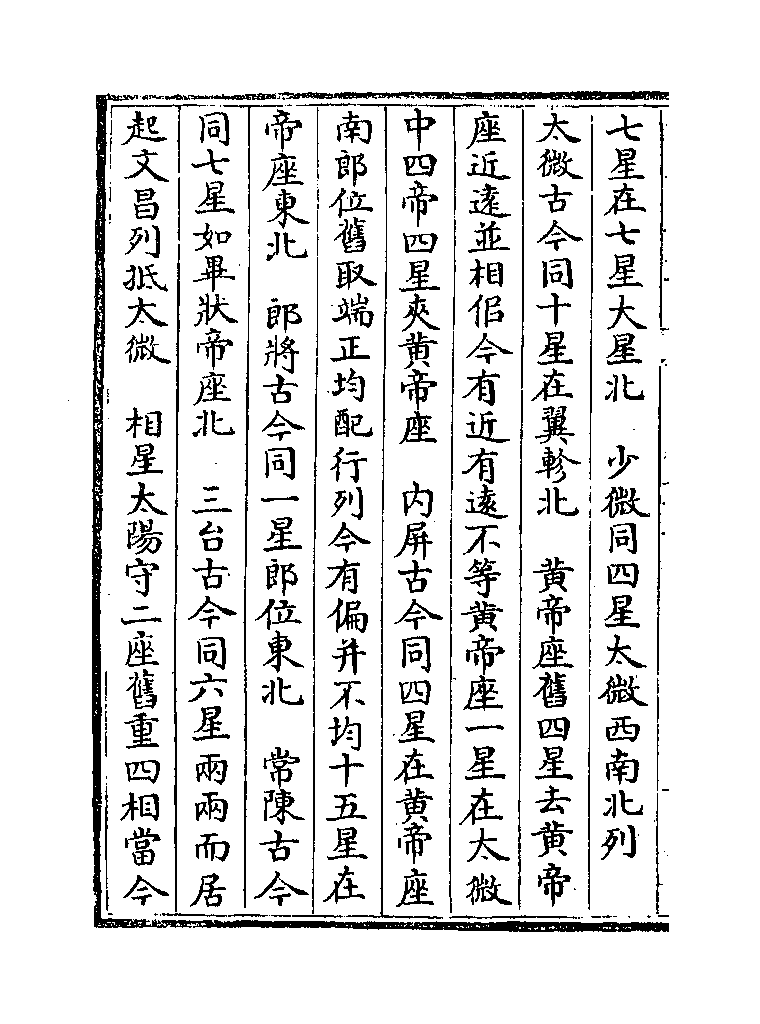 七星在七星大星北　少微同四星太微西南北列
太微古今同十星在翼軫北　黄帝座舊四星去黄帝
座近逺並相侣今有近有逺不等黄帝座一星在太微
中四帝四星夾黄帝座　内屏古今同四星在黄帝座
南郎位舊取端正均配行列今有偏并不均十五星在
帝座東北　郎將古今同一星郎位東北　常陳古今
同七星如畢狀帝座北　三台古今同六星兩兩而居
起文昌列抵太微　相星太陽守二座舊重四相當今